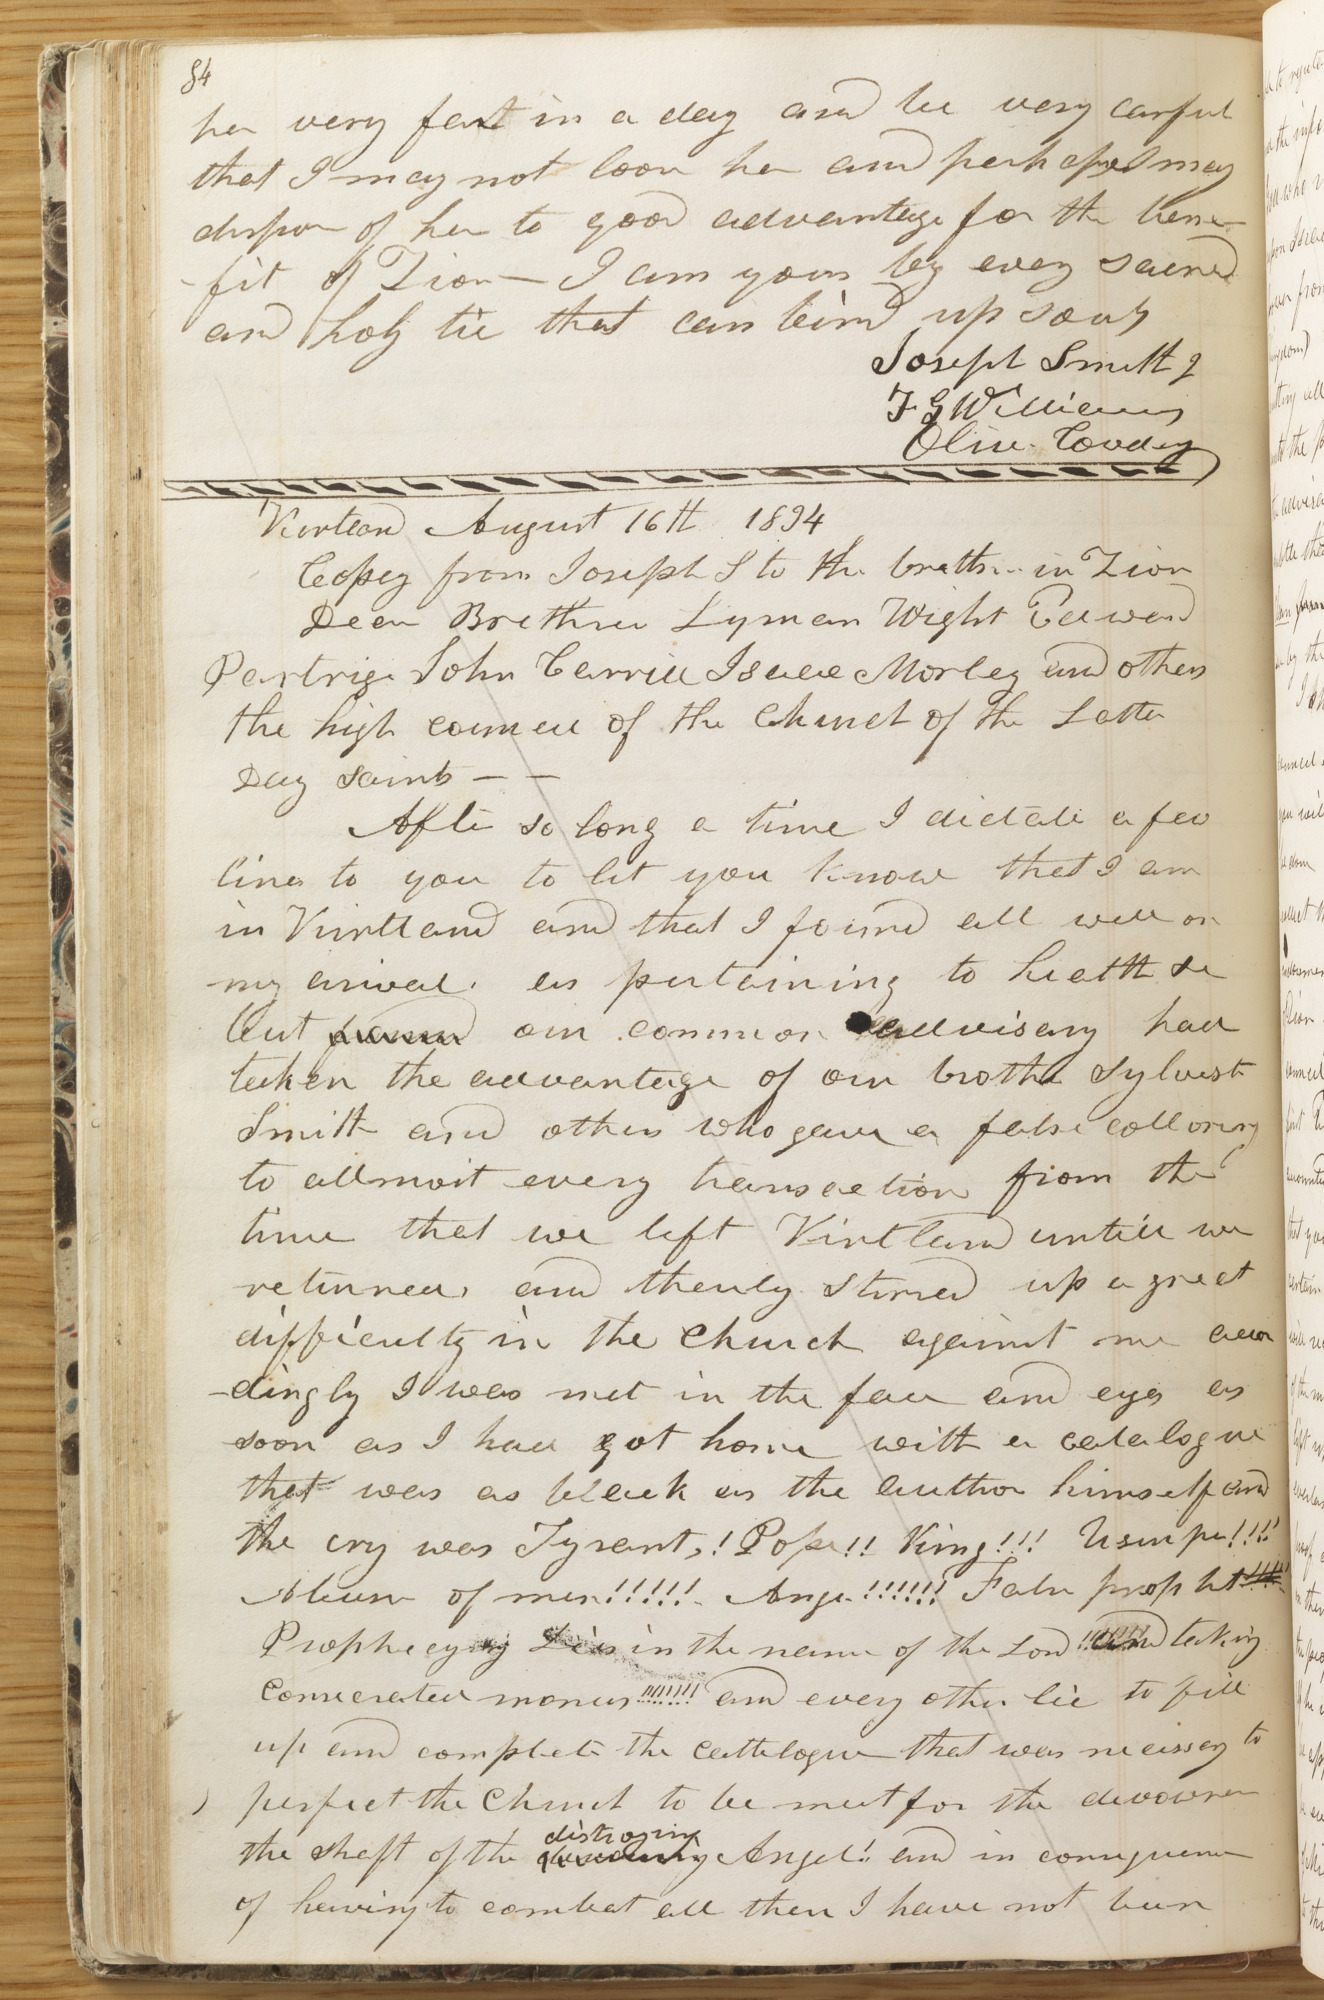 84
her very fast in a day and be very carful
that I may not loose her and perhaps I may
dispose of her to good advantage for the bene-
-fit of Zion— I am yours by evey sacred
and holy tie that can bind up souls
Joseph Smith J
F G Williams
Oliver Cowdey
Kirtland August 16th 1834
Copey from Joseph S to the brethren in Zion
Dear Brethren Lyman Wight Edward
Partrige John Carrill Isaac Morley and others
the high councel of the Church of the Latter
Day Saints — —
After so long a time I dictate a few
lines to you to let you know that I am
in Kirtland and that I found all well on
my arival. as pertaining to health &c
but found our common advisary had
taken the advantage of our brother Sylvester
Smith and others who gave a false colloring
to allmost every transaction from the
time that we left Kirtland untill we
returned, and thereby stirred up a great
difficulty in the Church against me accor
-dingly I was met in the face and eyes as
soon as I had got home with a catalogue
that was as black as the author himself and
the cry was Tyrant,! Pope!! King!!! Usurper!!!!
Abuser of men!!!!! Angel!!!!!! False prophet!!!!!
Prophecying Lies in the name of the Lord !!!!!!!! and taking
consecrated monies!!!!!!!!! and every other lie to fill
up and complete the cattelogue that was necissary to
perfect the Church to be meet for the devourer
the shaft of the distroying Angel! and in consequence
of having to combat all these I have not been